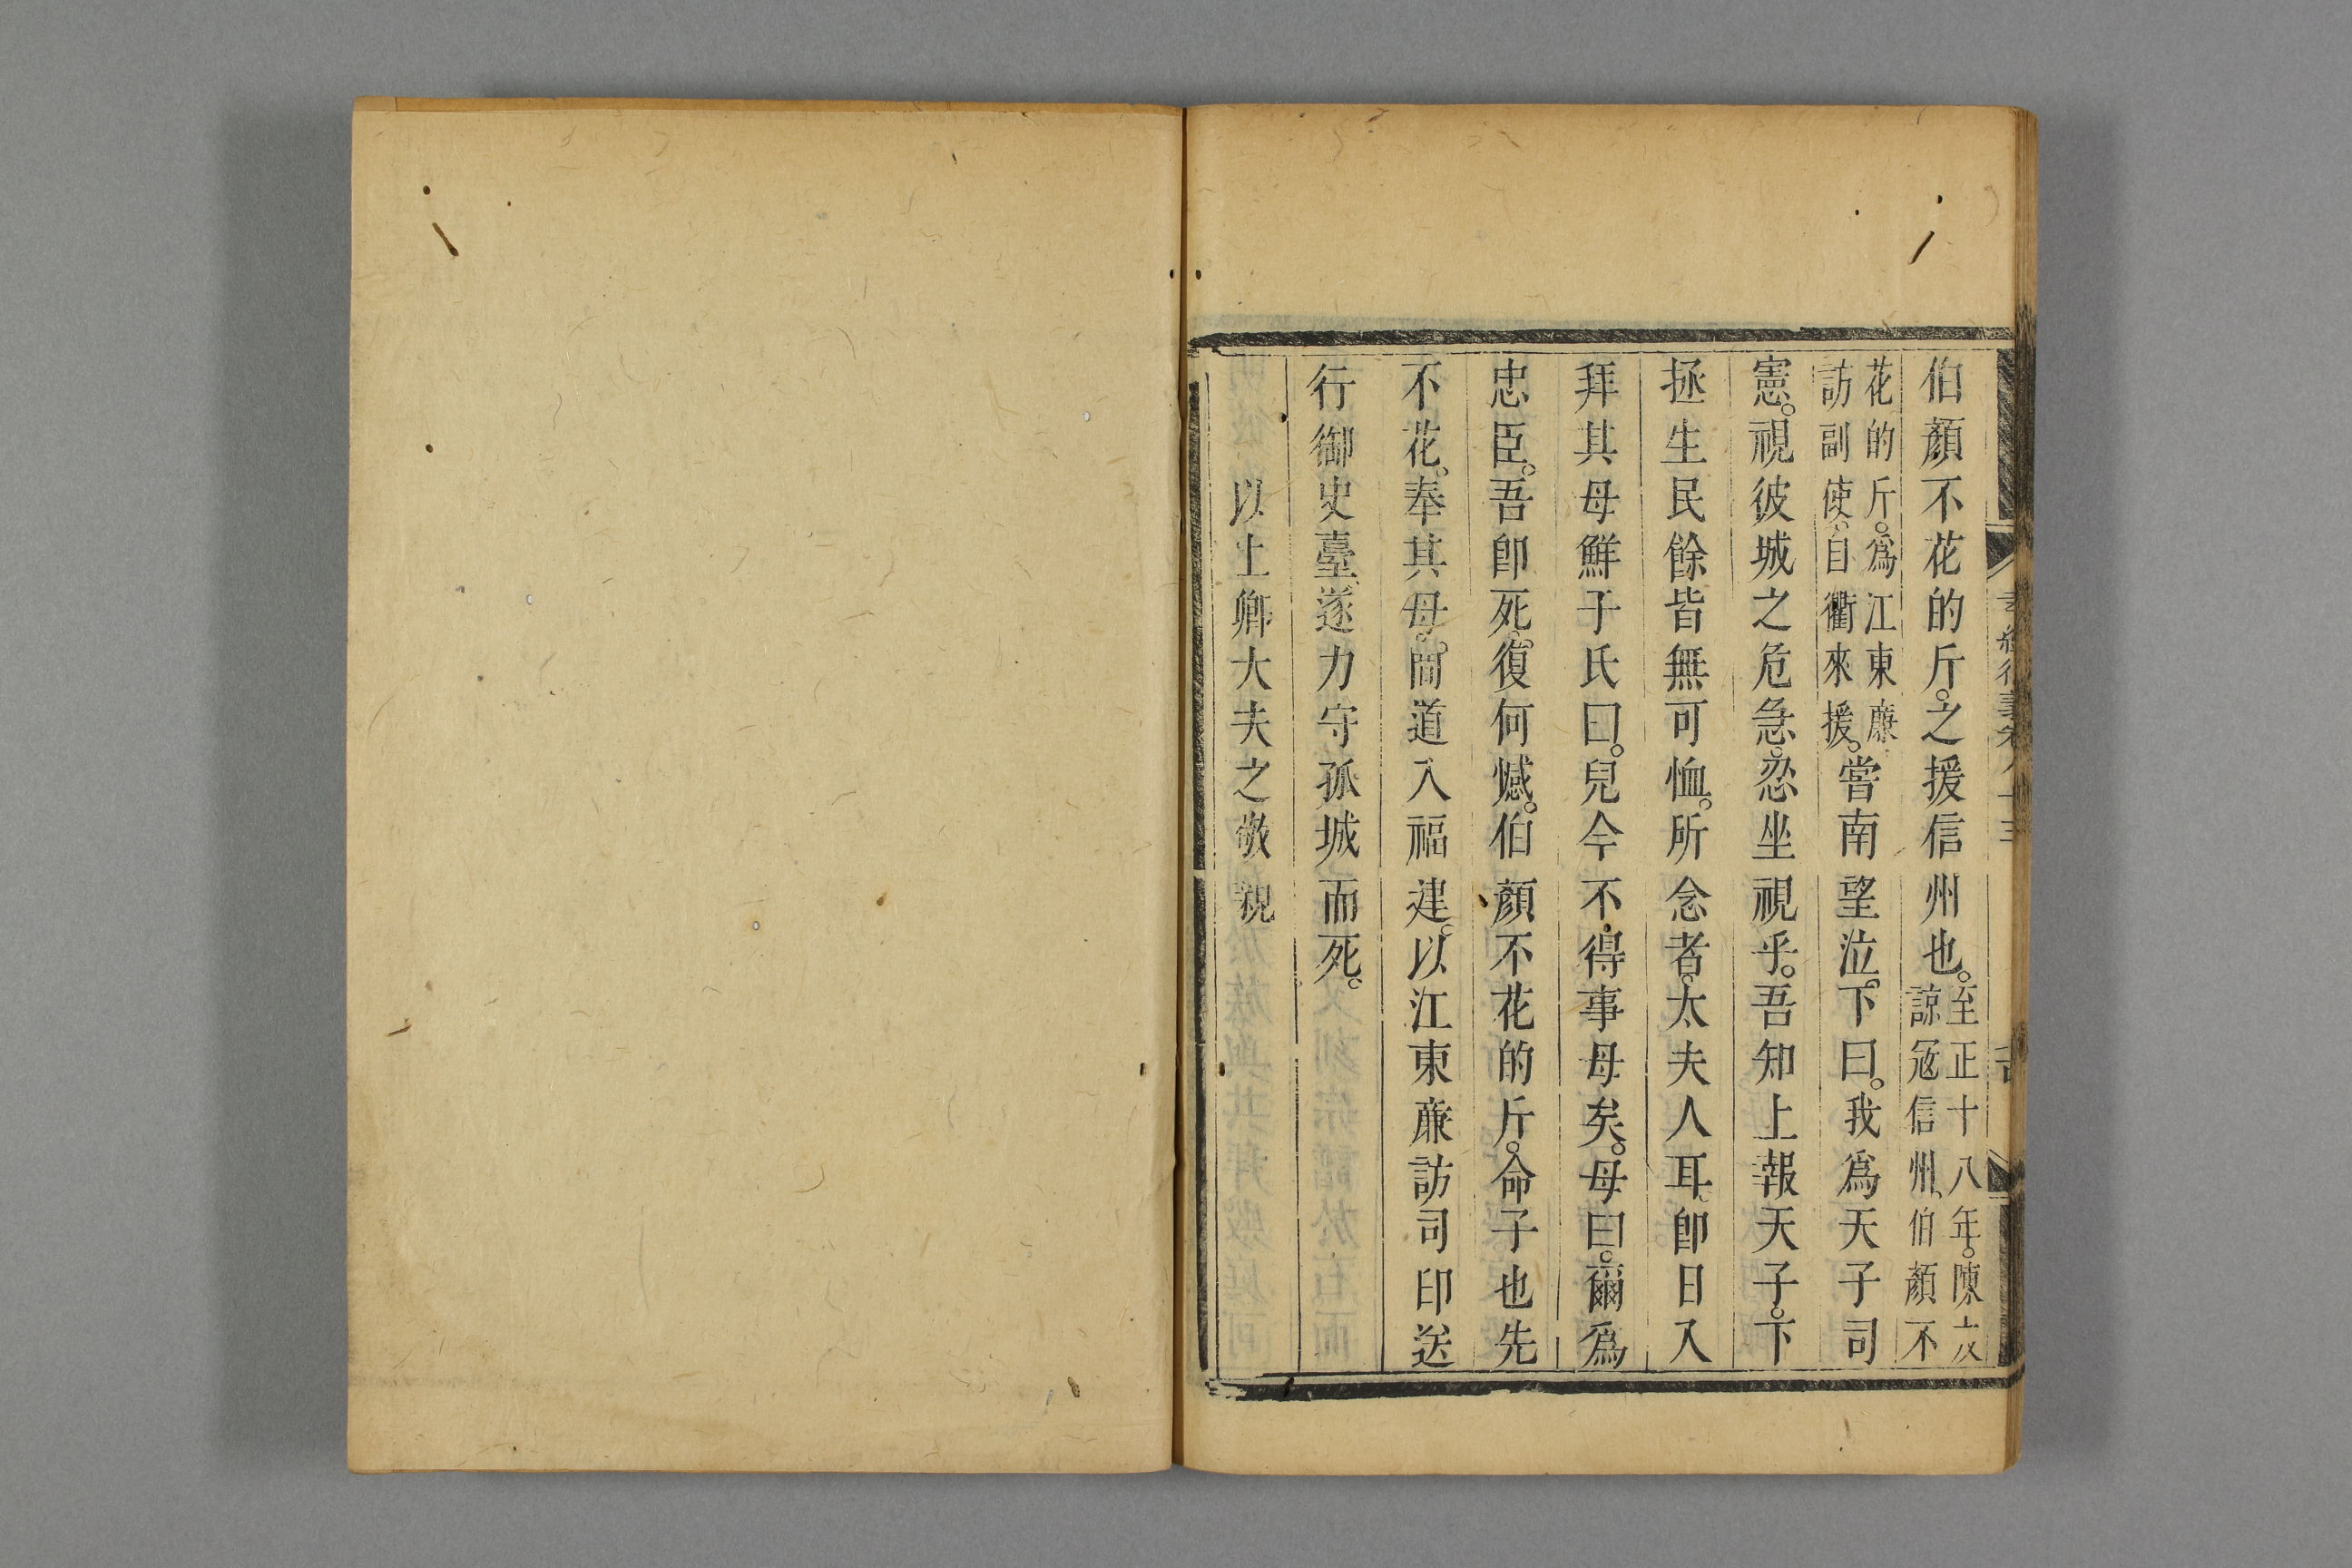 伯顏不花的斤。之援信州也。至正十八年。陳友諒寇信州、伯顏不
花的斤。爲江東廉訪副使、自衢來援。嘗南望泣。下曰。我爲天子司
憲。視彼城之危急。忍坐視乎。吾知上報天子。下
拯生民餘皆無可恤。所念者。太夫人耳、卽日入
拜其母鮮于氏曰。兒今不得事母矣。母曰。爾爲
忠臣。吾卽死。復何憾。伯顏不花的斤。命子也先
不花。奉其母。間道入福建。以江東廉訪司印送
行御史臺、遂力守孤城而死。
以上卿大夫之敬親